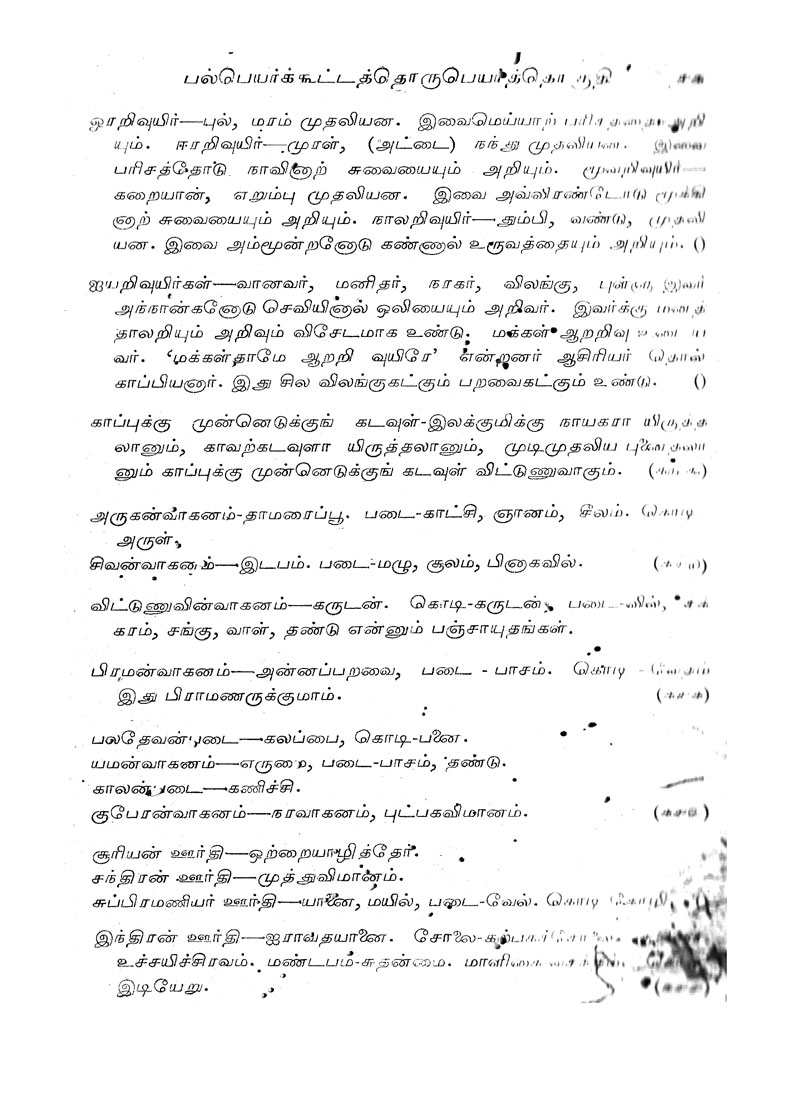 பல்பெயர்க்கூட்டத்தொருபெயர்த்தொகுதி
ஓரறிவுயிர்—புல், மரம் முதலியன. இவைமெய்யாற் பரிசத்தை அறி
யும். ஈரறிவுயிர்—முரள், (அட்டை) நந்து முதலியன. இவை
பரிசத்தோடு நாவினாற் சுவையையும் அறியும். மூவறிவுயிர்—
கறையான், எறும்பு முதலியன. இவை அவ்விரண்டோடு மூக்கி
னாற் சுவையையும் அறியும். நாலறிவுயிர்—தும்பி, வண்டு, முதலி
யன. இவை அம்மூன்றனோடு கண்ணால் உருவத்தையும் அறியும். ()
ஐயறிவுயிர்கள்—வானவர், மனிதர், நாகர், விலங்கு, புள் இவர்
அந்நான்கனோடு செவியினால் ஒலியையும் அறிவர். இவர்க்கு மனத்
தாலறியும் அறிவும் விசேடமாக உண்டு. மக்கள் ஆறறிவு உடைய
வர். ‘மக்கள்தாமே ஆறறி வுயிரே’ என்றனர் ஆசிரியர் தொல்
காப்பியனார். இது சில விலங்குகட்கும் பறவைகட்கும் உண்டு. ()
காப்புக்கு முன்னெடுக்குங் கடவுள்-இலக்குமிக்கு நாயகரா யிருத்த
லானும், காவற்கடவுளா யிருத்தலானும், முடிமுதலிய புனைதலா
னும் காப்புக்கு முன்னெடுக்குங் கடவுள் விட்டுணுவாகும்.
அருகன்வாகனம்-தாமரைப்பூ. படை-காட்சி, ஞானம், சீலம். கொடி
அருள்.
சிவன்வாகனம்—இடபம். படை-மழு, சூலம், பினாகவில்.
விட்டுணுவின்வாகனம்—கருடன். கொடி-கருடன், படை-வில், சக்
கரம், சங்கு, வாள், தண்டு என்னும் பஞ்சாயுதங்கள்.
பிரமன்வாகனம்—அன்னப்பறவை, படை - பாசம். கொடி - வேதம்
இது பிராமணருக்குமாம்.
பலதேவன்படை—கலப்பை, கொடி-பனை.
யமன்வாகனம்—எருமை, படை-பாசம், தண்டு.
காலன்படை—கணிச்சி.
குபேரன்வாகனம்—நரவாகனம், புட்பகவிமானம்.
சூரியன் ஊர்தி—ஒற்றையாழித்தேர்.
சந்திரன் ஊர்தி—முத்துவிமானம்.
சுப்பிரமணியர் ஊர்தி—யானை, மயில், படை-வேல். கொடி கோழி.
இந்திரன் ஊர்தி—ஐராவதயானை. சோலை-கற்பகச்சோலை
உச்சயிச்சிரவம். மண்டபம்-சுதன்மை. மாளிகை
இடியேறு.